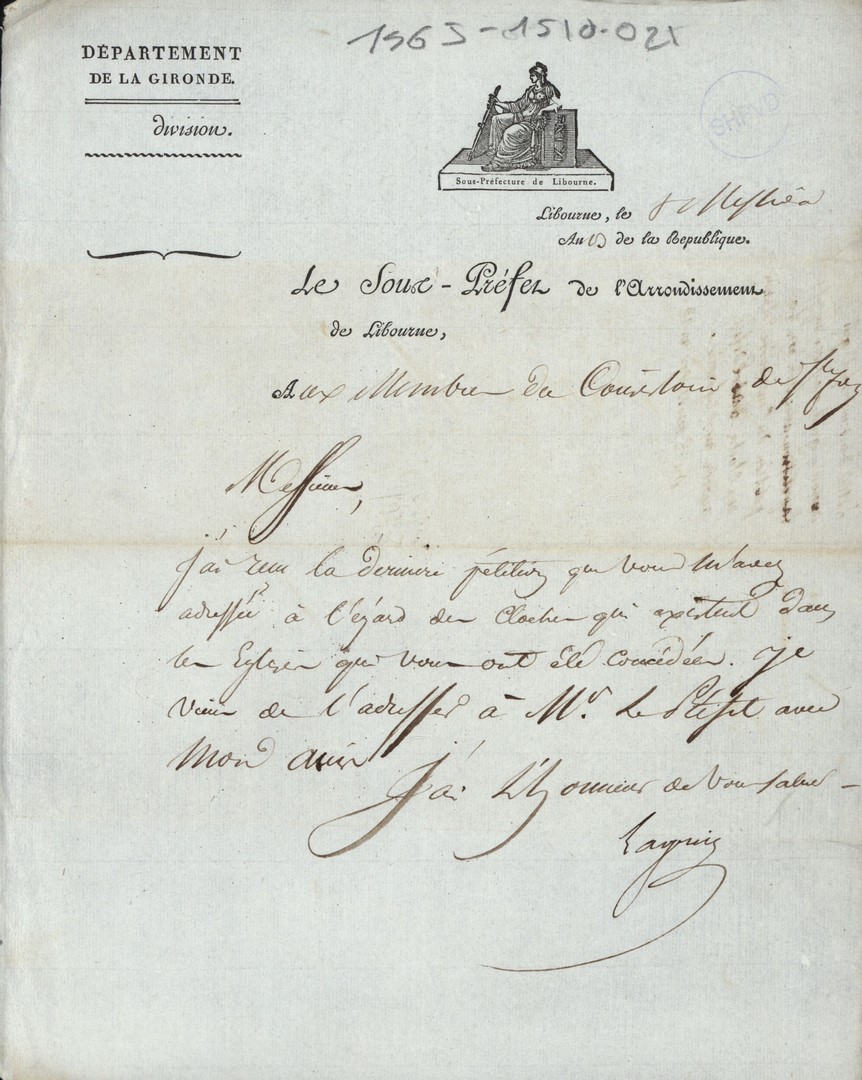 1563-1510-021
DÉPARTEMENT
DE LA GIRONDE.
division.
SHPVD
Sous-Préfecture de Libourne.
Libourne, le 8 Messidor
An 13 de la Republique.
Le Sous-Préfet de l'Arrondissement
de Libourne,
Aux Membres du Consistoire de Ste foy
Messieurs,
j'ai reçu la derniere pétition que vous m'avez
adressée à l'égard des cloches qui existent dans
les Eglises qui vous ont été concédées. je
viens de l'adresser à Mr. Le Préfet avec
mon avis
J'ai L'honneur de vous saluer